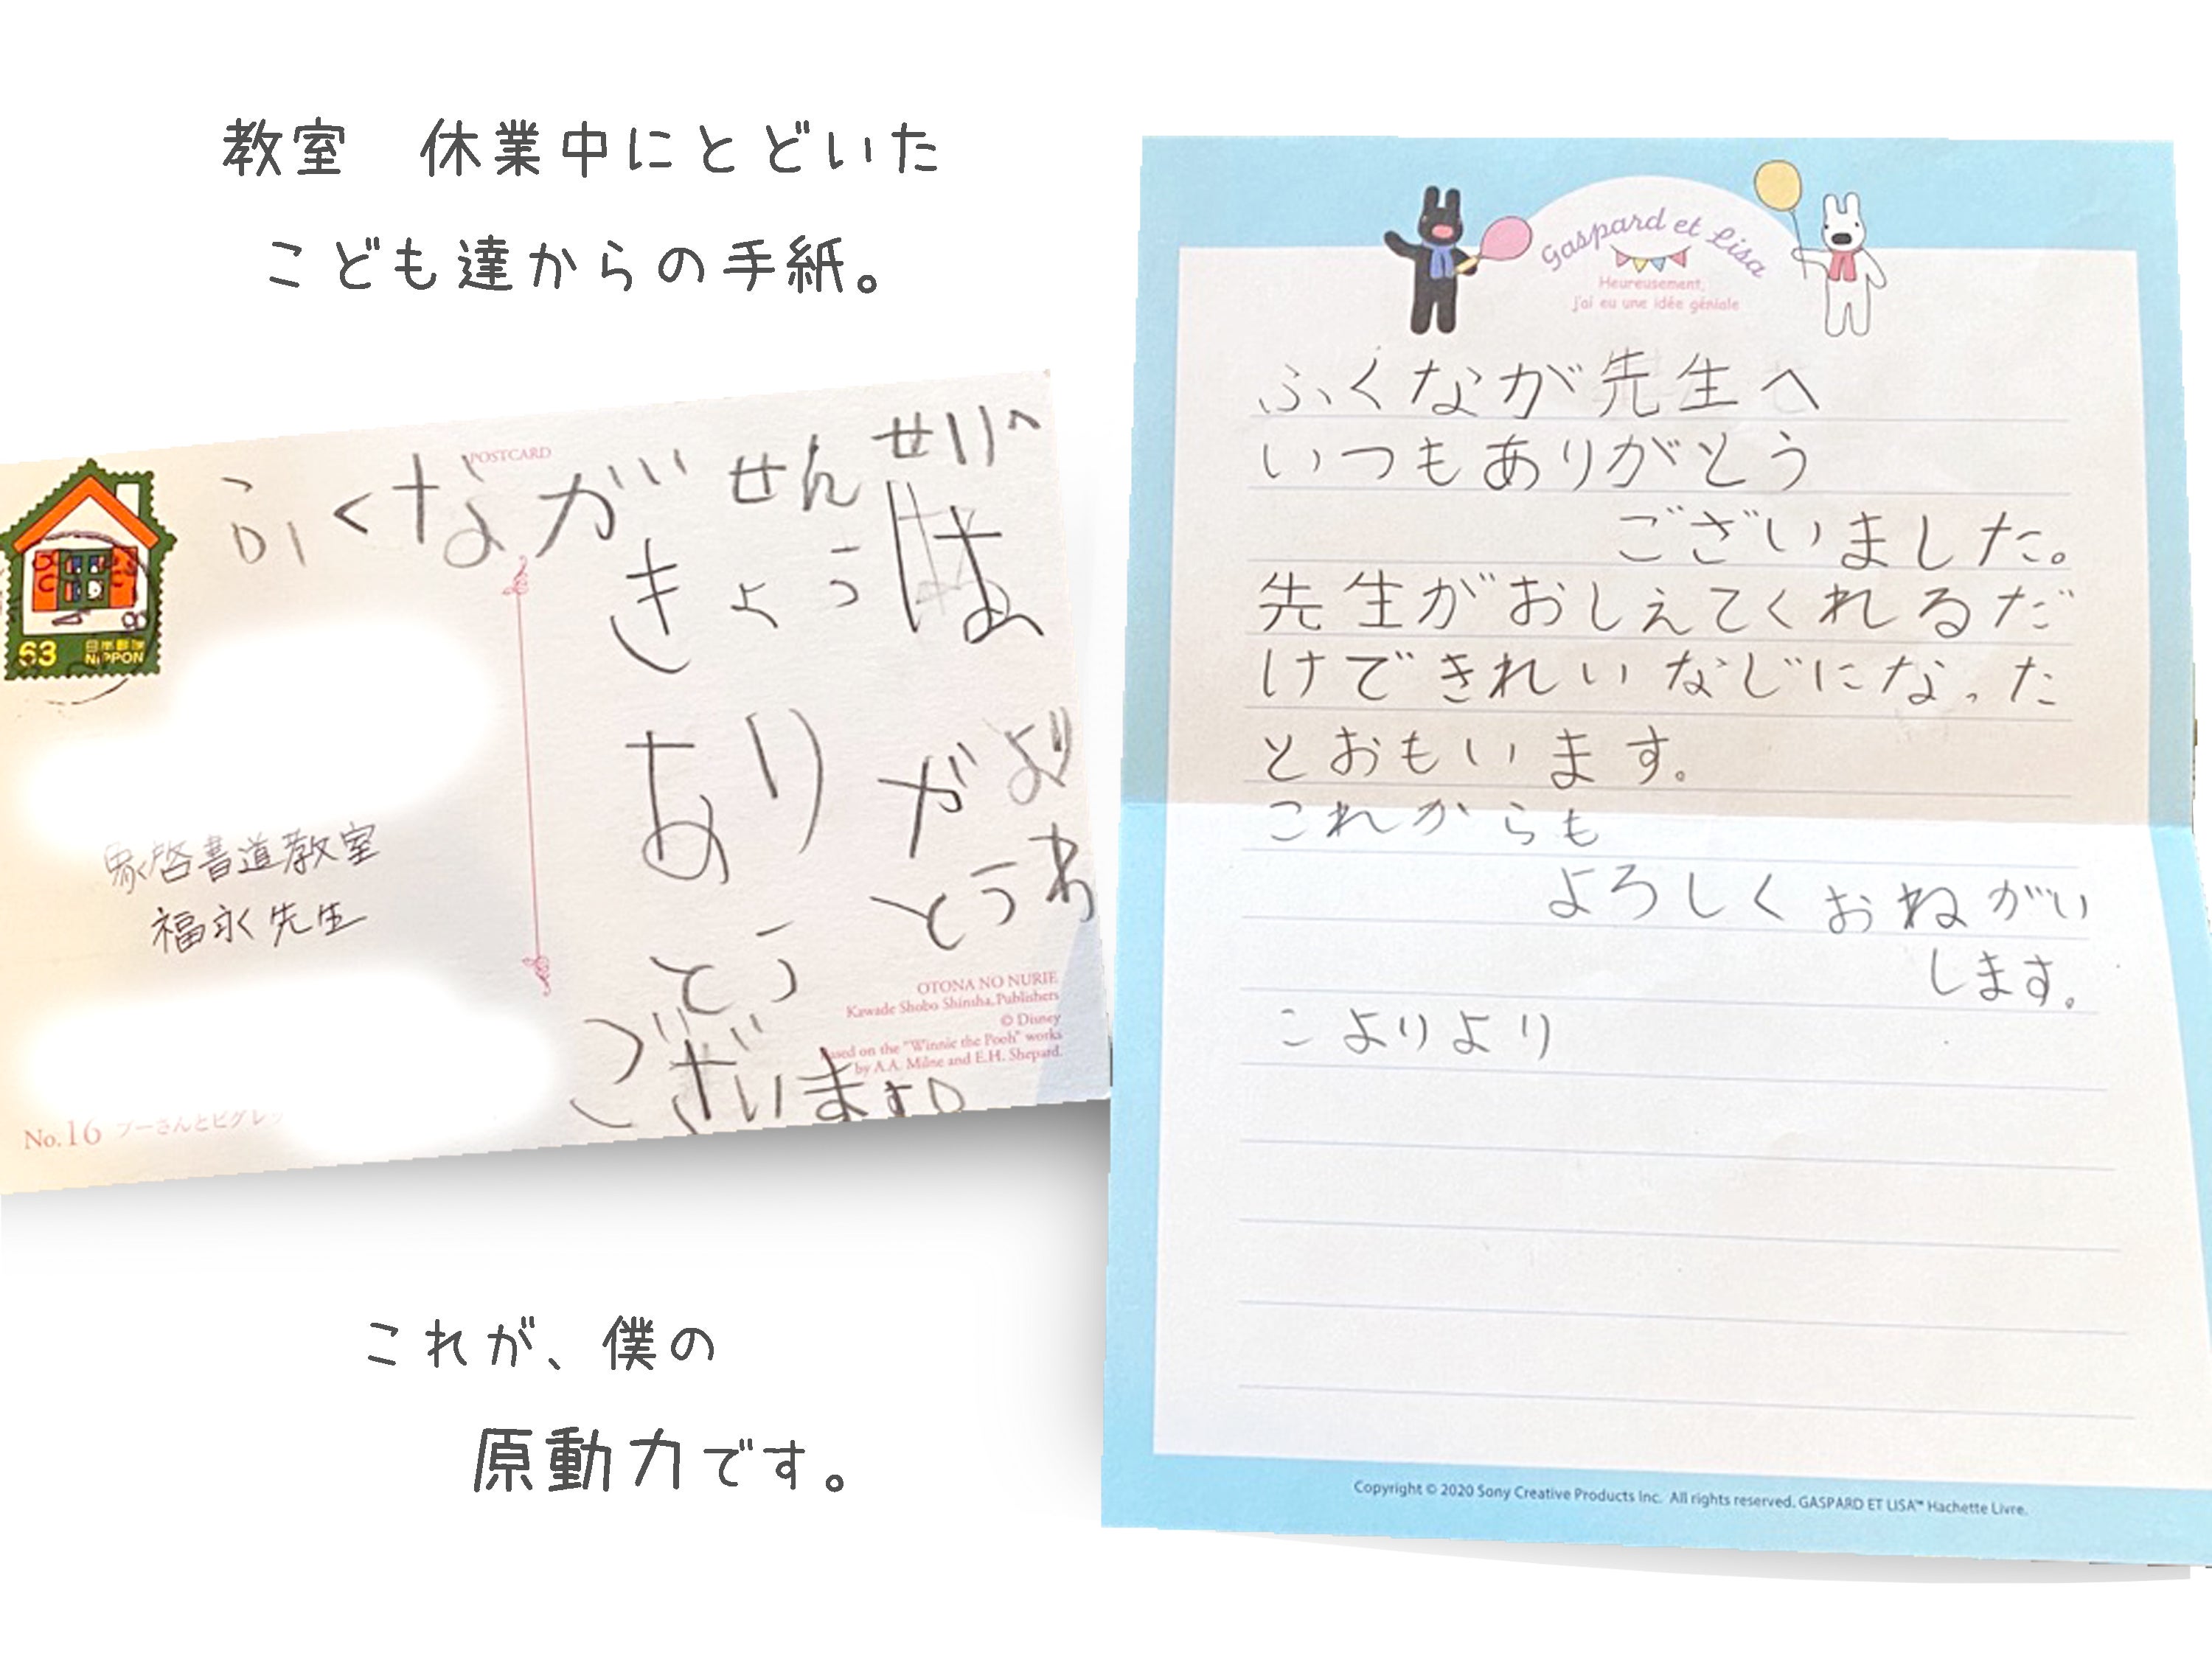 教室　休業中にとどいた
こども達からの手紙。
POSTCARD
ふくながせんせいへ
きょうは
ありが
とう
ございます。
より
とうわ
63
日本郵便
NIPPON
啓書道教室
福永先生
OTONA NO NURIE
Kawade Shobo Shinsha, Publishers
© Disney
Based on the "Winnie the Pooh" works
by A.A. Milne and E.H. Shepard.
No.16 プーさんとピグレッ
Gaspard et Lisa
Heureusement,
j'ai eu une idée géniale
ふくなが先生へ
いつもありがとう
ございました。
先生がおしえてくれるだ
けできれいなじになった
とおもいます。
これからも
よろしくおねがい
します。
こよりより
Copyright © 2020 Sony Creative Products Inc. All rights reserved. GASPARD ET LISA™ Hachette Livre.
これが、僕の
原動力です。